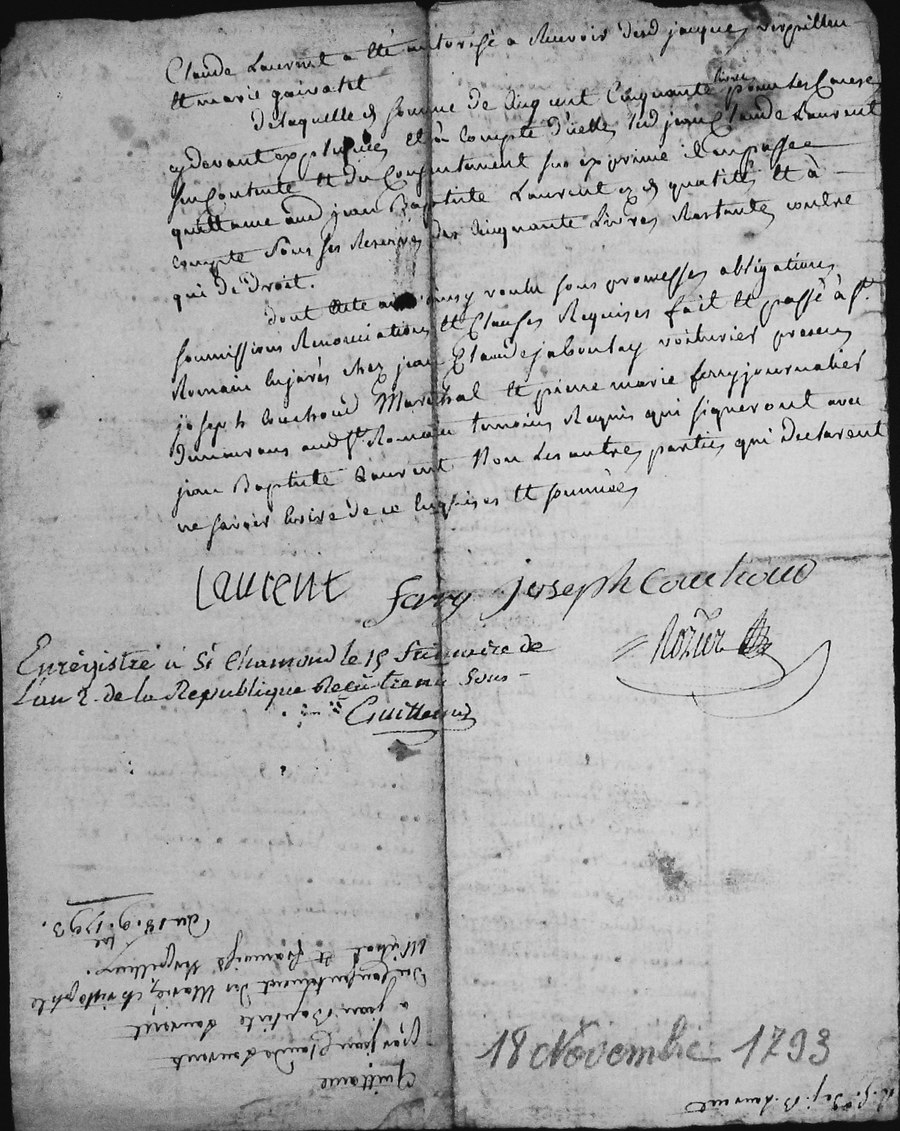 Claude Laurent a été autorisé a Recevoir desd jacques verpilleu
Et marie gairaud
De laquelle d. somme de cinq cent Cinquante livres pour les Causes
cydevant expliquées Et à Compte d'icelles led jean Claude Laurent
sen Contente Et du Consentement sus exprimé il en passe
quittance aud jean Baptiste Laurent ez d. qualités Et à
compte sous ses Reserves des cinquante Livres Restantes contre
qui de Droit.
Dont acte ainsy voulu sous promesses obligations
soumissions Renonciations Et Clauses Requises fait Et passé à St.
Romain En jarès chez jean Claude jaboulay voiturier presens
joseph Couchoud Maréchal Et pierre marie ferry journalier
Demeurans aud St. Romain temoins Requis qui signeront avec
jean Baptiste Laurent Non Les autres parties qui Declarent
ne savoir Ecrire de ce Enquises Et sommées
Laurent ferry joseph Couchoud
Rozier
Enregistré a St Chamond le 15 frimaire de
l'an 2. de la Republique Reçu trente sous
Guillemin
Quittance
par jean Claude Laurent
a jean Baptiste Laurent
Du Consentement des Marie, christophle
Michel Et françois Verpilleu.
Du 18. 9bre 1793.
18 Novembre 1793
B. Laurent